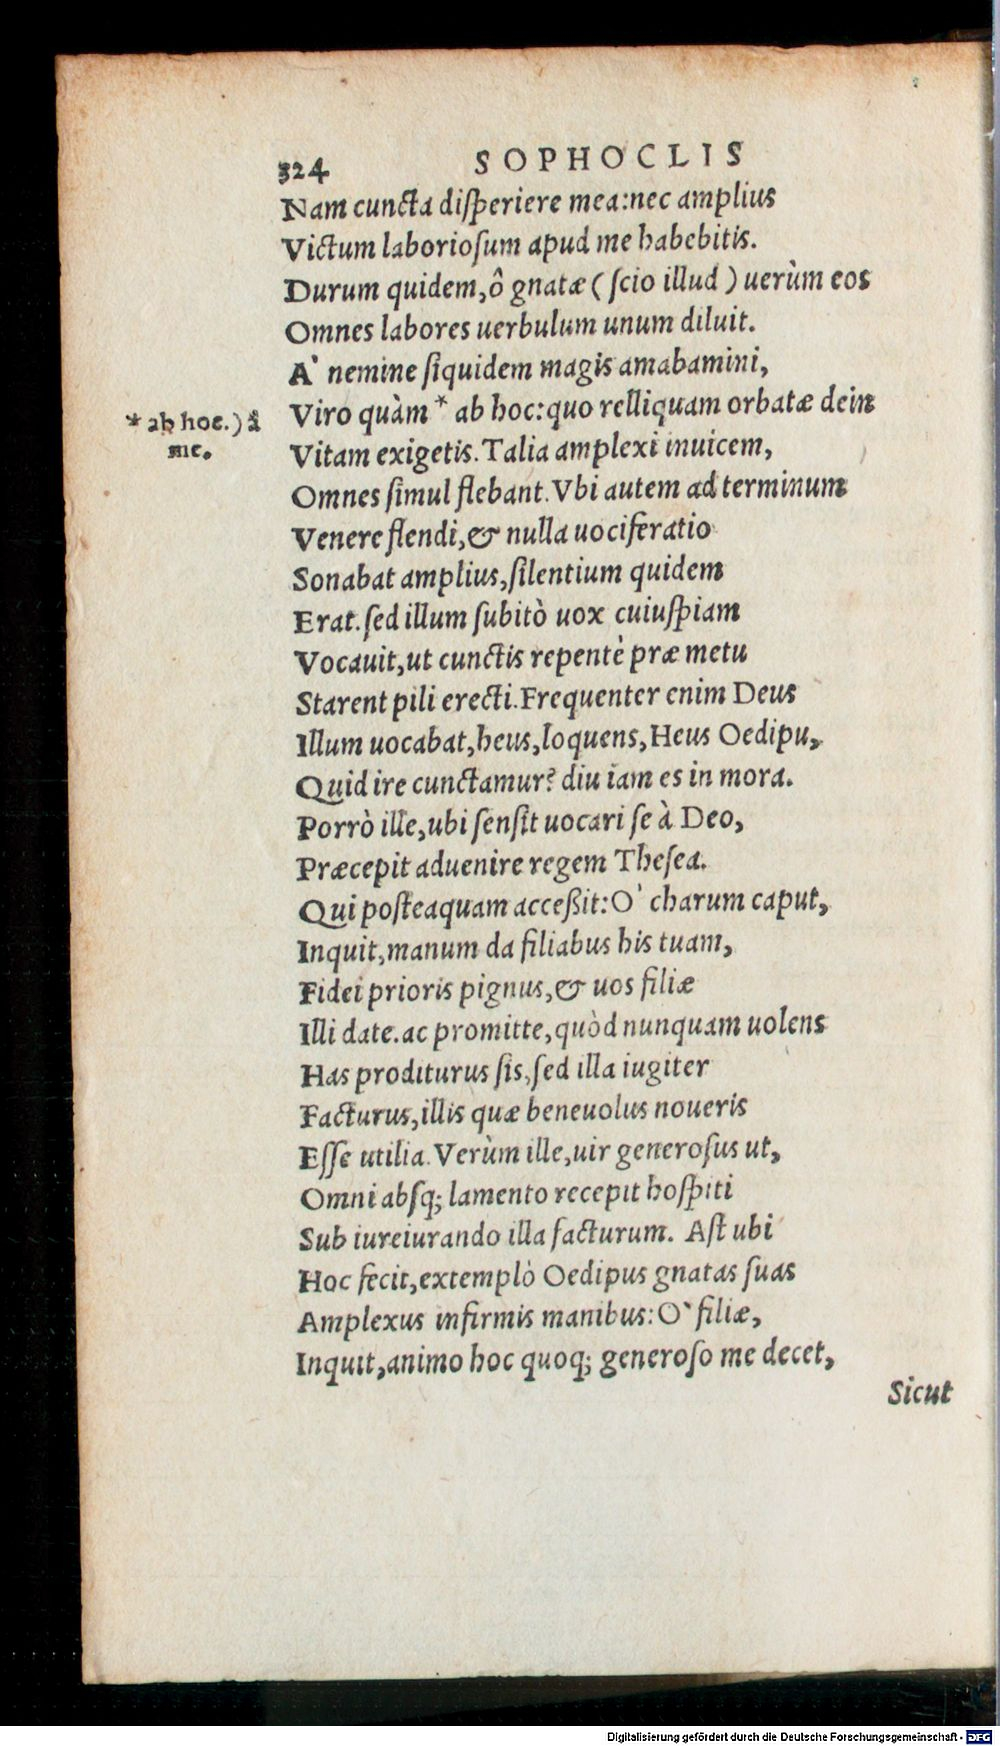 324 SOPHOCLIS
Nam cuncta diſperiere mea:nec amplius
Victum laborioſum apud me habebitis.
Durum quidem,ô gnatæ ( ſcio illud ) uerùm eos
Omnes labores uerbulum unum diluit.
A` nemine ſiquidem magis amabamini,
Viro quàm * ab hoc:quo relliquam orbatæ dein
* ab hoc.) â
me.
Vitam exigetis.Talia amplexi inuicem,
Omnes ſimul flebant.Vbi autem ad terminum
Venere flendi,& nulla uociferatio
Sonabat amplius,ſilentium quidem
Erat.ſed illum ſubitò uox cuiuſpiam
Vocauit,ut cunctis repentè præ metu
Starent pili erecti.Frequenter enim Deus
Illum uocabat,heus,loquens,Heus Oedipu,
Quid ire cunctamur? diu iam es in mora.
Porrò ille,ubi ſenſit uocari ſe à Deo,
Præcepit aduenire regem Theſea.
Qui poſteaquam acceßit:O` charum caput,
Inquit,manum da filiabus his tuam,
Fidei prioris pignus,& uos filiæ
Illi date.ac promitte,quòd nunquam uolens
Has proditurus ſis,ſed illa iugiter
Facturus,illis quæ beneuolus noueris
Eſſe utilia.Verùm ille,uir generoſus ut,
Omni abſq; lamento recepit hoſpiti
Sub iureiurando illa facturum. Aſt ubi
Hoc fecit,extemplò Oedipus gnatas ſuas
Amplexus infirmis manibus:O` filiæ,
Inquit,animo hoc quoq; generoſo me decet,
Sicut
Digitalisierung gefördert durch die Deutsche Forschungsgemeinschaft - DFG